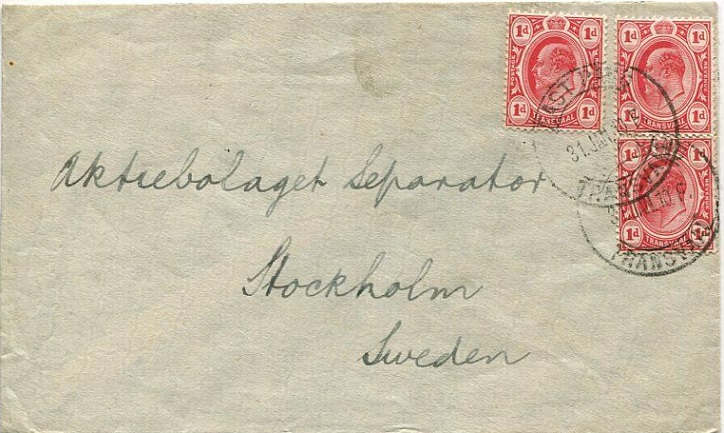 1d 1d
POSTAGE
1d 1d
TRANSVAAL
1d 1d
1d
TRANSVAAL
1d 1d
1d
TRANSVAAL
31 JAN
TRANSVAAL
TRANSVAAL
Aktiebolaget Separator
Stockholm
Sweden